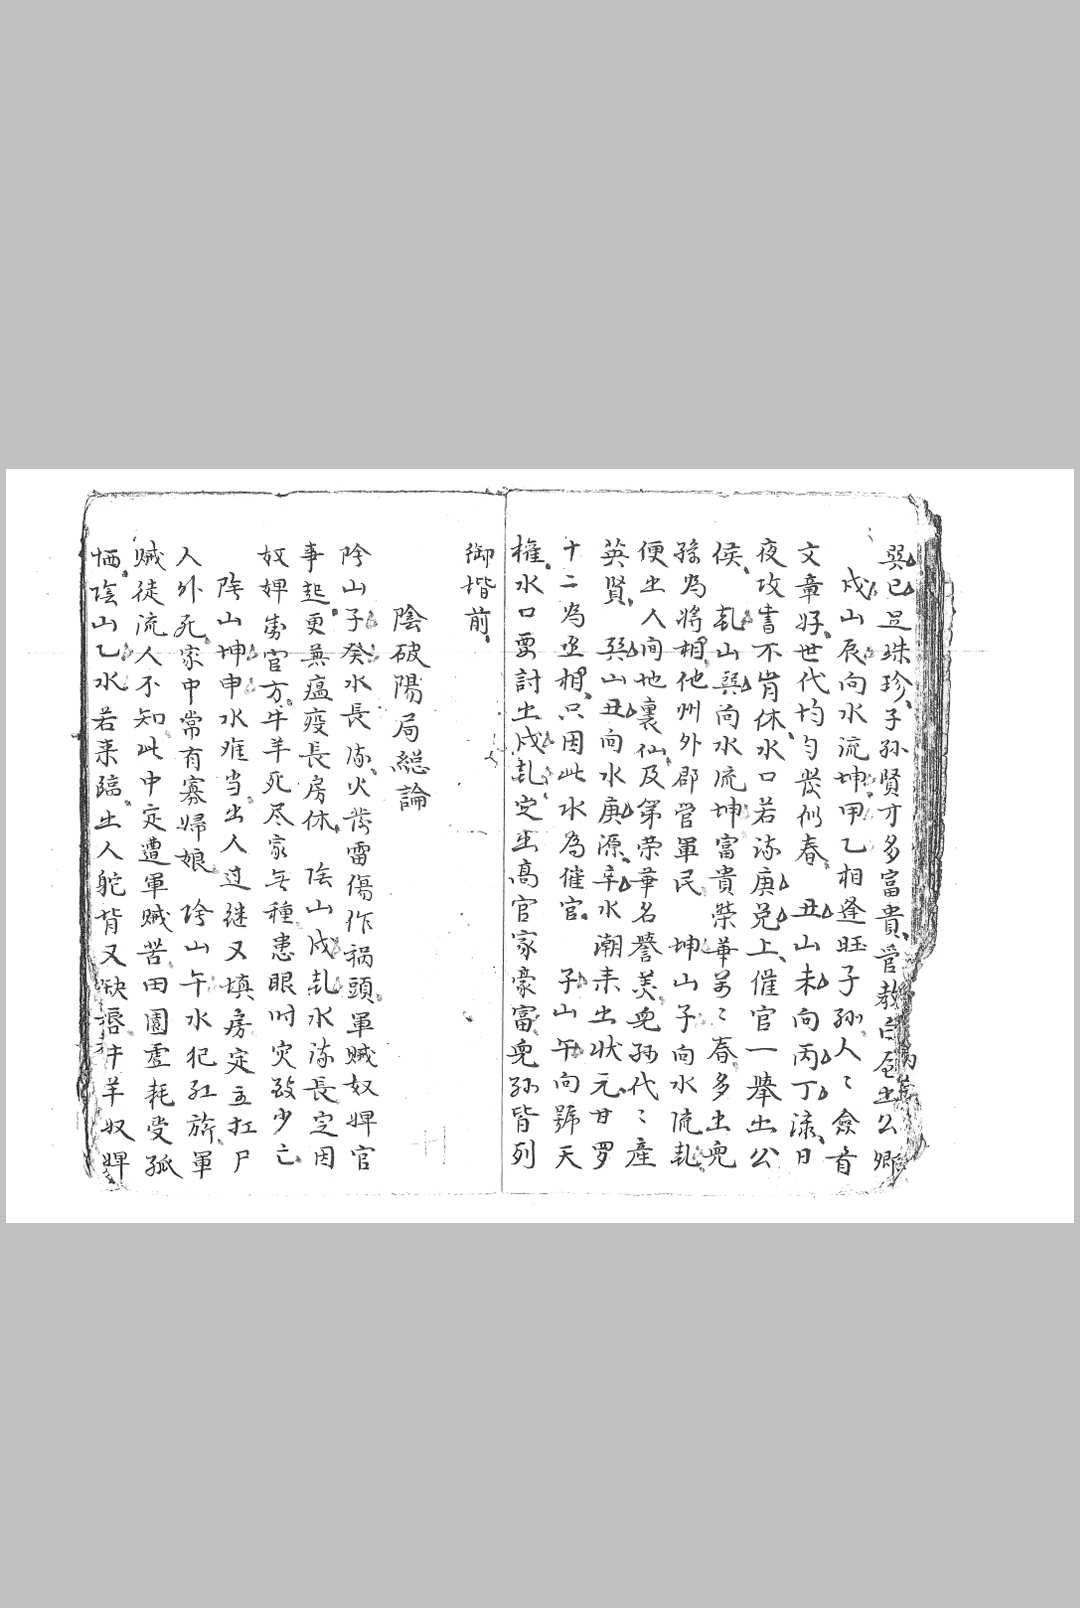 巽巳是珠珍子孙賢才多富貴管教白屋出公卿
戍山辰向水流坤甲乙相逢旺子孙人〻僉首
文章好世代均匀發似春 丑山未向丙丁流日
夜攻書不肯休水口若流庚兑上催官一舉出公
侯 乹山巽向水流坤富貴榮華萬〻春多出兒
孫為將相他州外郡管軍民 坤山子向水流乹
便出人间地裏仙及第荣華名譽美兒孫代〻產
英賢 巽山丑向水庚源辛水潮来出状元甘罗
十二為丞相只因此水為催官 子山午向號天
權水口要討土戍乹定出高官家豪富兒孙皆列
御楷前
陰破陽局総論
阴山子癸水長流火發雷傷作祸頭軍賊奴婢官
事起更兼瘟疫長房休 陰山戍乹水流長定因
奴婢劳官方牛羊死尽家无種患眼时灾致少亡
陰山坤申水难当出人过继又填房定主扛尸
人外死家中常有寡婦娘 阴山午水犯红旂軍
賊徒流人不知此中定遭軍賊苦田園虚耗受孤
恓陰山乙水若来臨出人駝背又缺唇牛羊奴婢